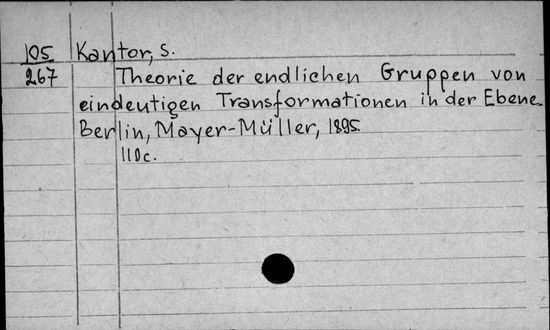 105 Kantor, S.
267 Theorie der endlichen Gruppen von
eindeutigen Transformationen in der Ebene.
Berlin, Mayer-Müller, 1895.
110c.